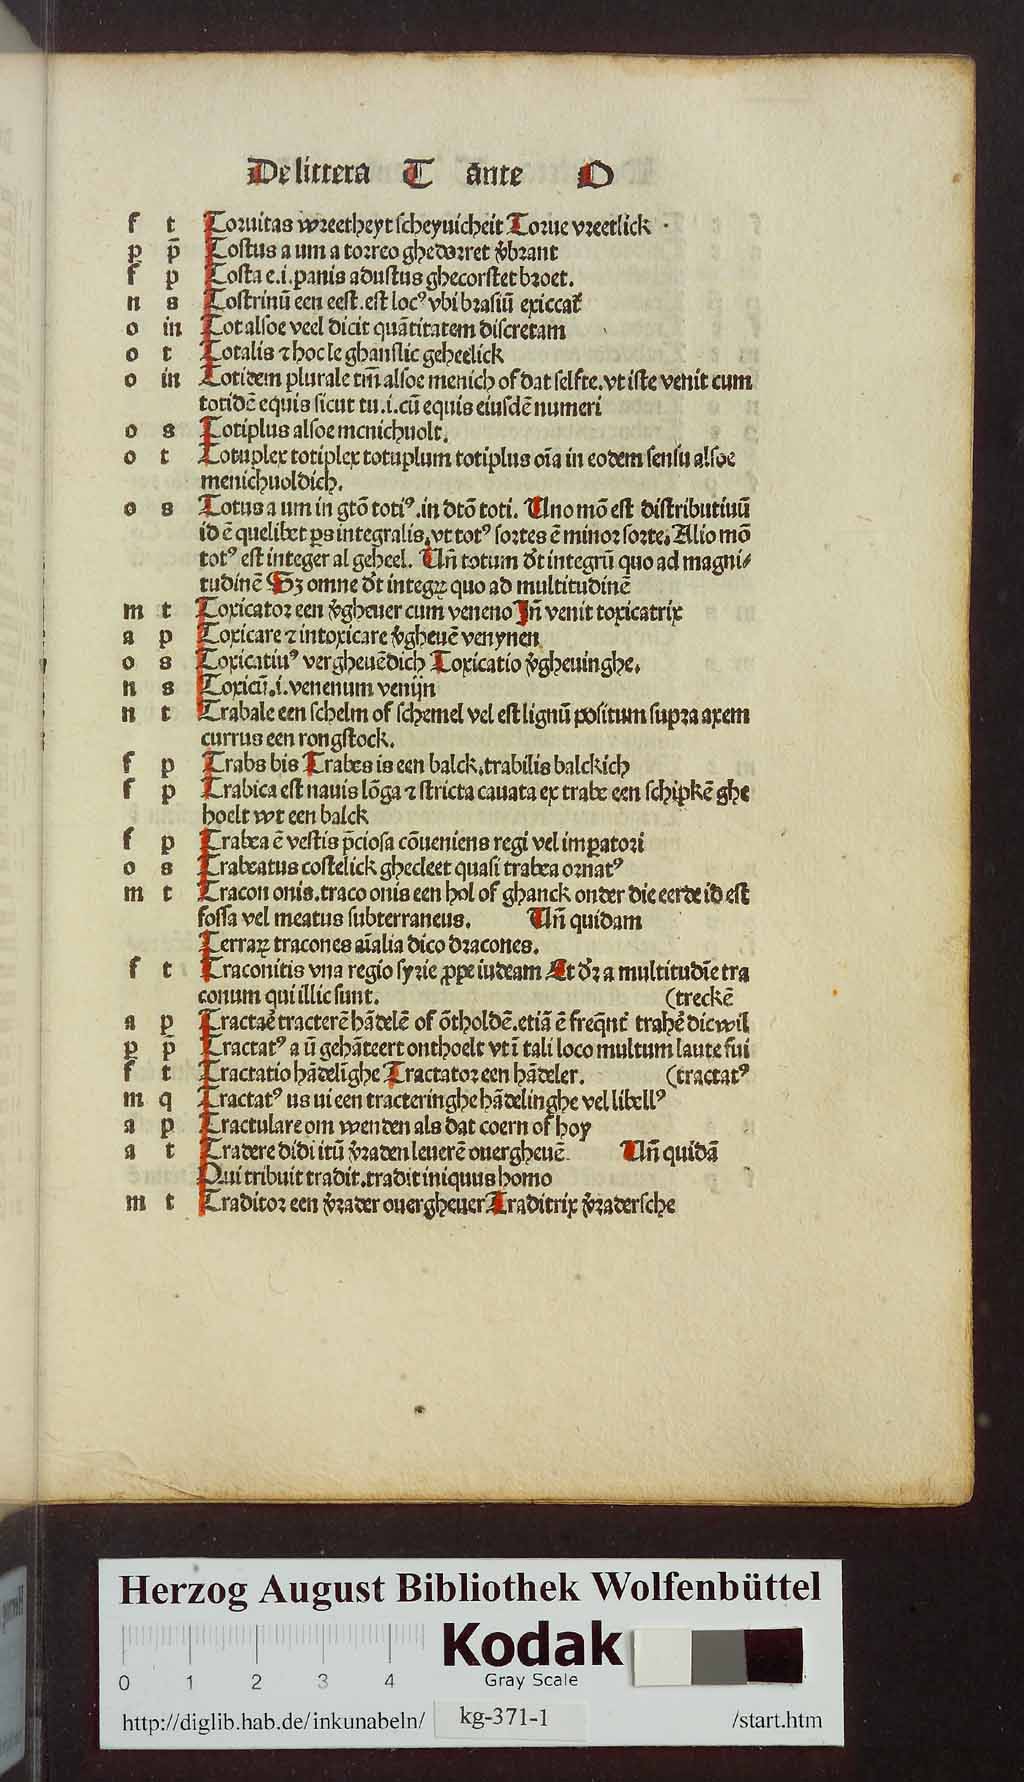 De littera T ante O
f t Toruitas wreetheyt scheyuicheit Torue vreetlick
p p̄ Tostus a um a torreo ghedorret v̄brant
f p Tosta e .i. panis adustus ghecorstet broet.
n s Tostrinū een eest. est locꝰ vbi brasiū exiccat᷑
o in Tot alsoe veel dicit quātitatem discretam
o t Totalis ⁊ hoc le ghanslic geheelick
o in Totidem plurale tm̄ alsoe menich of dat selfte. vt iste venit cum
totidē equis sicut tu .i. cū equis eiusdē numeri
o s Totiplus alsoe menichuolt.
o t Totuplex totiplex totuplum totiplus oīa in eodem sensu alsoe
menichuoldich.
o s Totus a um in gtō totiꝰ. in dtō toti. Uno mō est distributiuū
id ē quelibet ꝑs integralis. vt totꝰ sortes ē minor sorte. Alio mō
totꝰ est integer al geheel. Un̄ totum dr̄t integrū quo ad magni⸗
tudinē Sꝫ omne dr̄t integꝝ quo ad multitudinē
m t Toxicator een v̄gheuer cum veneno Jn̄ venit toxicatrix
a p Toxicare ⁊ intoxicare v̄gheuē venynen
o s Toxicatiuꝰ vergheuēdich Toxicatio v̄gheuinghe.
n s Toxicū .i. venenum venijn
n t Trabale een schelm of schemel vel est lignū positum supra axem
currus een rongstock.
f p Trabs bis Trabes is een balck. trabilis balckich
f p Trabica est nauis lōga ⁊ stricta cauata ex trabe een schipkē ghe
hoelt wt een balck
f p Trabea ē vestis p̄ciosa cōueniens regi vel imꝑatori
o s Trabeatus costelick ghecleet quasi trabea ornatꝰ
m t Tracon onis. traco onis een hol of ghanck onder die eerde id est
fossa vel meatus subterraneus. Un̄ quidam
Terraꝝ tracones aīalia dico dracones.
f t Traconitis vna regio syrie ꝓpe iudeam Et dr̄ a multitudīe tra
conum qui illic sunt. (treckē
a p Tractar̄e tracterē hādelē of ōtholdē. etiā ē freq̄nt᷑ trahe᷑ dicwil
p p̄ Tractatꝰ a ū gehāteert onthoelt vt ī tali loco multum laute fui
f t Tractatio hādelīghe Tractator een hādeler. (tractatꝰ
m q Tractatꝰ us ui een tracteringhe hādelinghe vel libellꝰ
a p Tractulare om wenden als dat coern of hoy
a t Tradere didi itū v̄raden leuerē ouergheuē Un̄ quidā
Qui tribuit tradit. tradit iniquus homo
m t Traditor een v̄rader ouergheuer Traditrix v̄radersche
Herzog August Bibliothek Wolfenbüttel
0 1 2 3 4
Kodak
Gray Scale
http://diglib.hab.de/inkunabeln/ kg-371-1 /start.htm